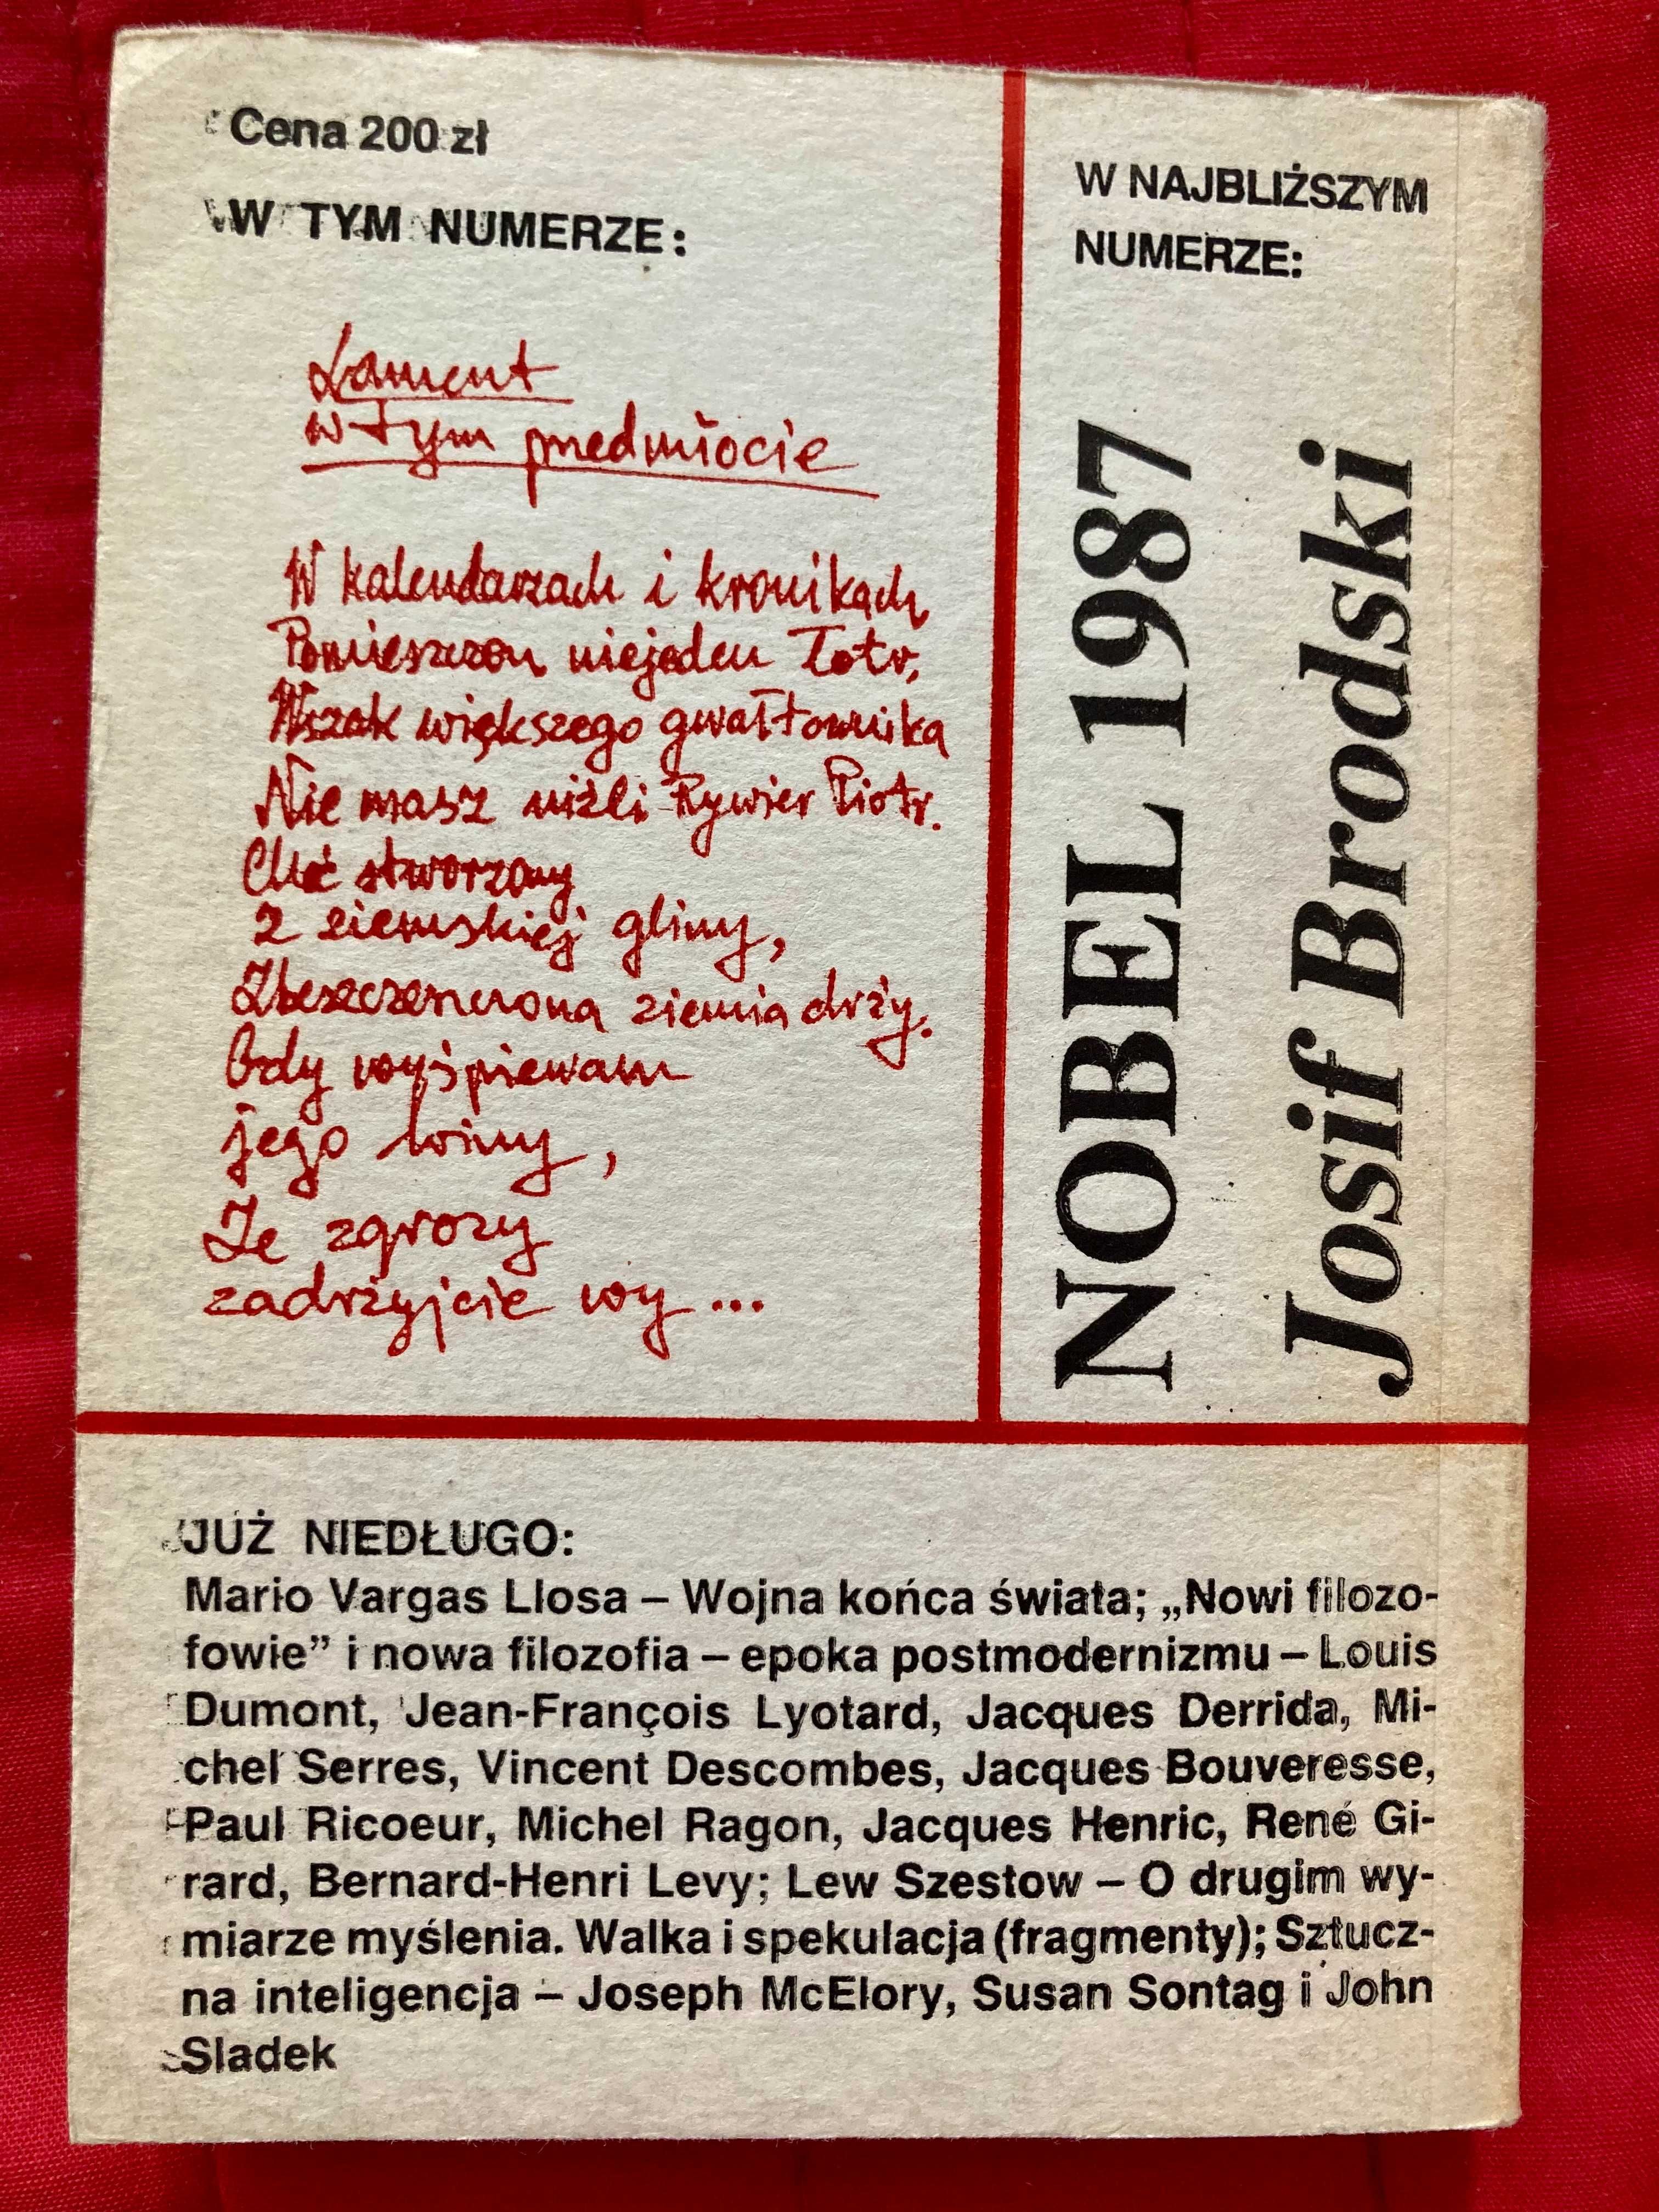 Cena 200 zł
W TYM NUMERZE:
Lament
w tym przedmiocie
W kalendarzach i kronikach
Pomieszczon niejeden łotr,
Wszak większego gwałtownika
Nie masz niźli Rywier Piotr.
Choć stworzony
z ziemskiej gliny,
Zbezczeszczona ziemia drży.
Gdy wyśpiewam
jego winy,
Ze zgrozy
zadrżyjcie wy ...
W NAJBLIŻSZYM
NUMERZE:
NOBEL 1987
Josif Brodski
JUŻ NIEDŁUGO:
Mario Vargas Llosa – Wojna końca świata; „Nowi filozo-
fowie” i nowa filozofia – epoka postmodernizmu – Louis
Dumont, Jean-François Lyotard, Jacques Derrida, Mi-
chel Serres, Vincent Descombes, Jacques Bouveresse,
Paul Ricoeur, Michel Ragon, Jacques Henric, René Gi-
rard, Bernard-Henri Levy; Lew Szestow – O drugim wy-
miarze myślenia. Walka i spekulacja (fragmenty); Sztucz-
na inteligencja – Joseph McElory, Susan Sontag i John
Sladek